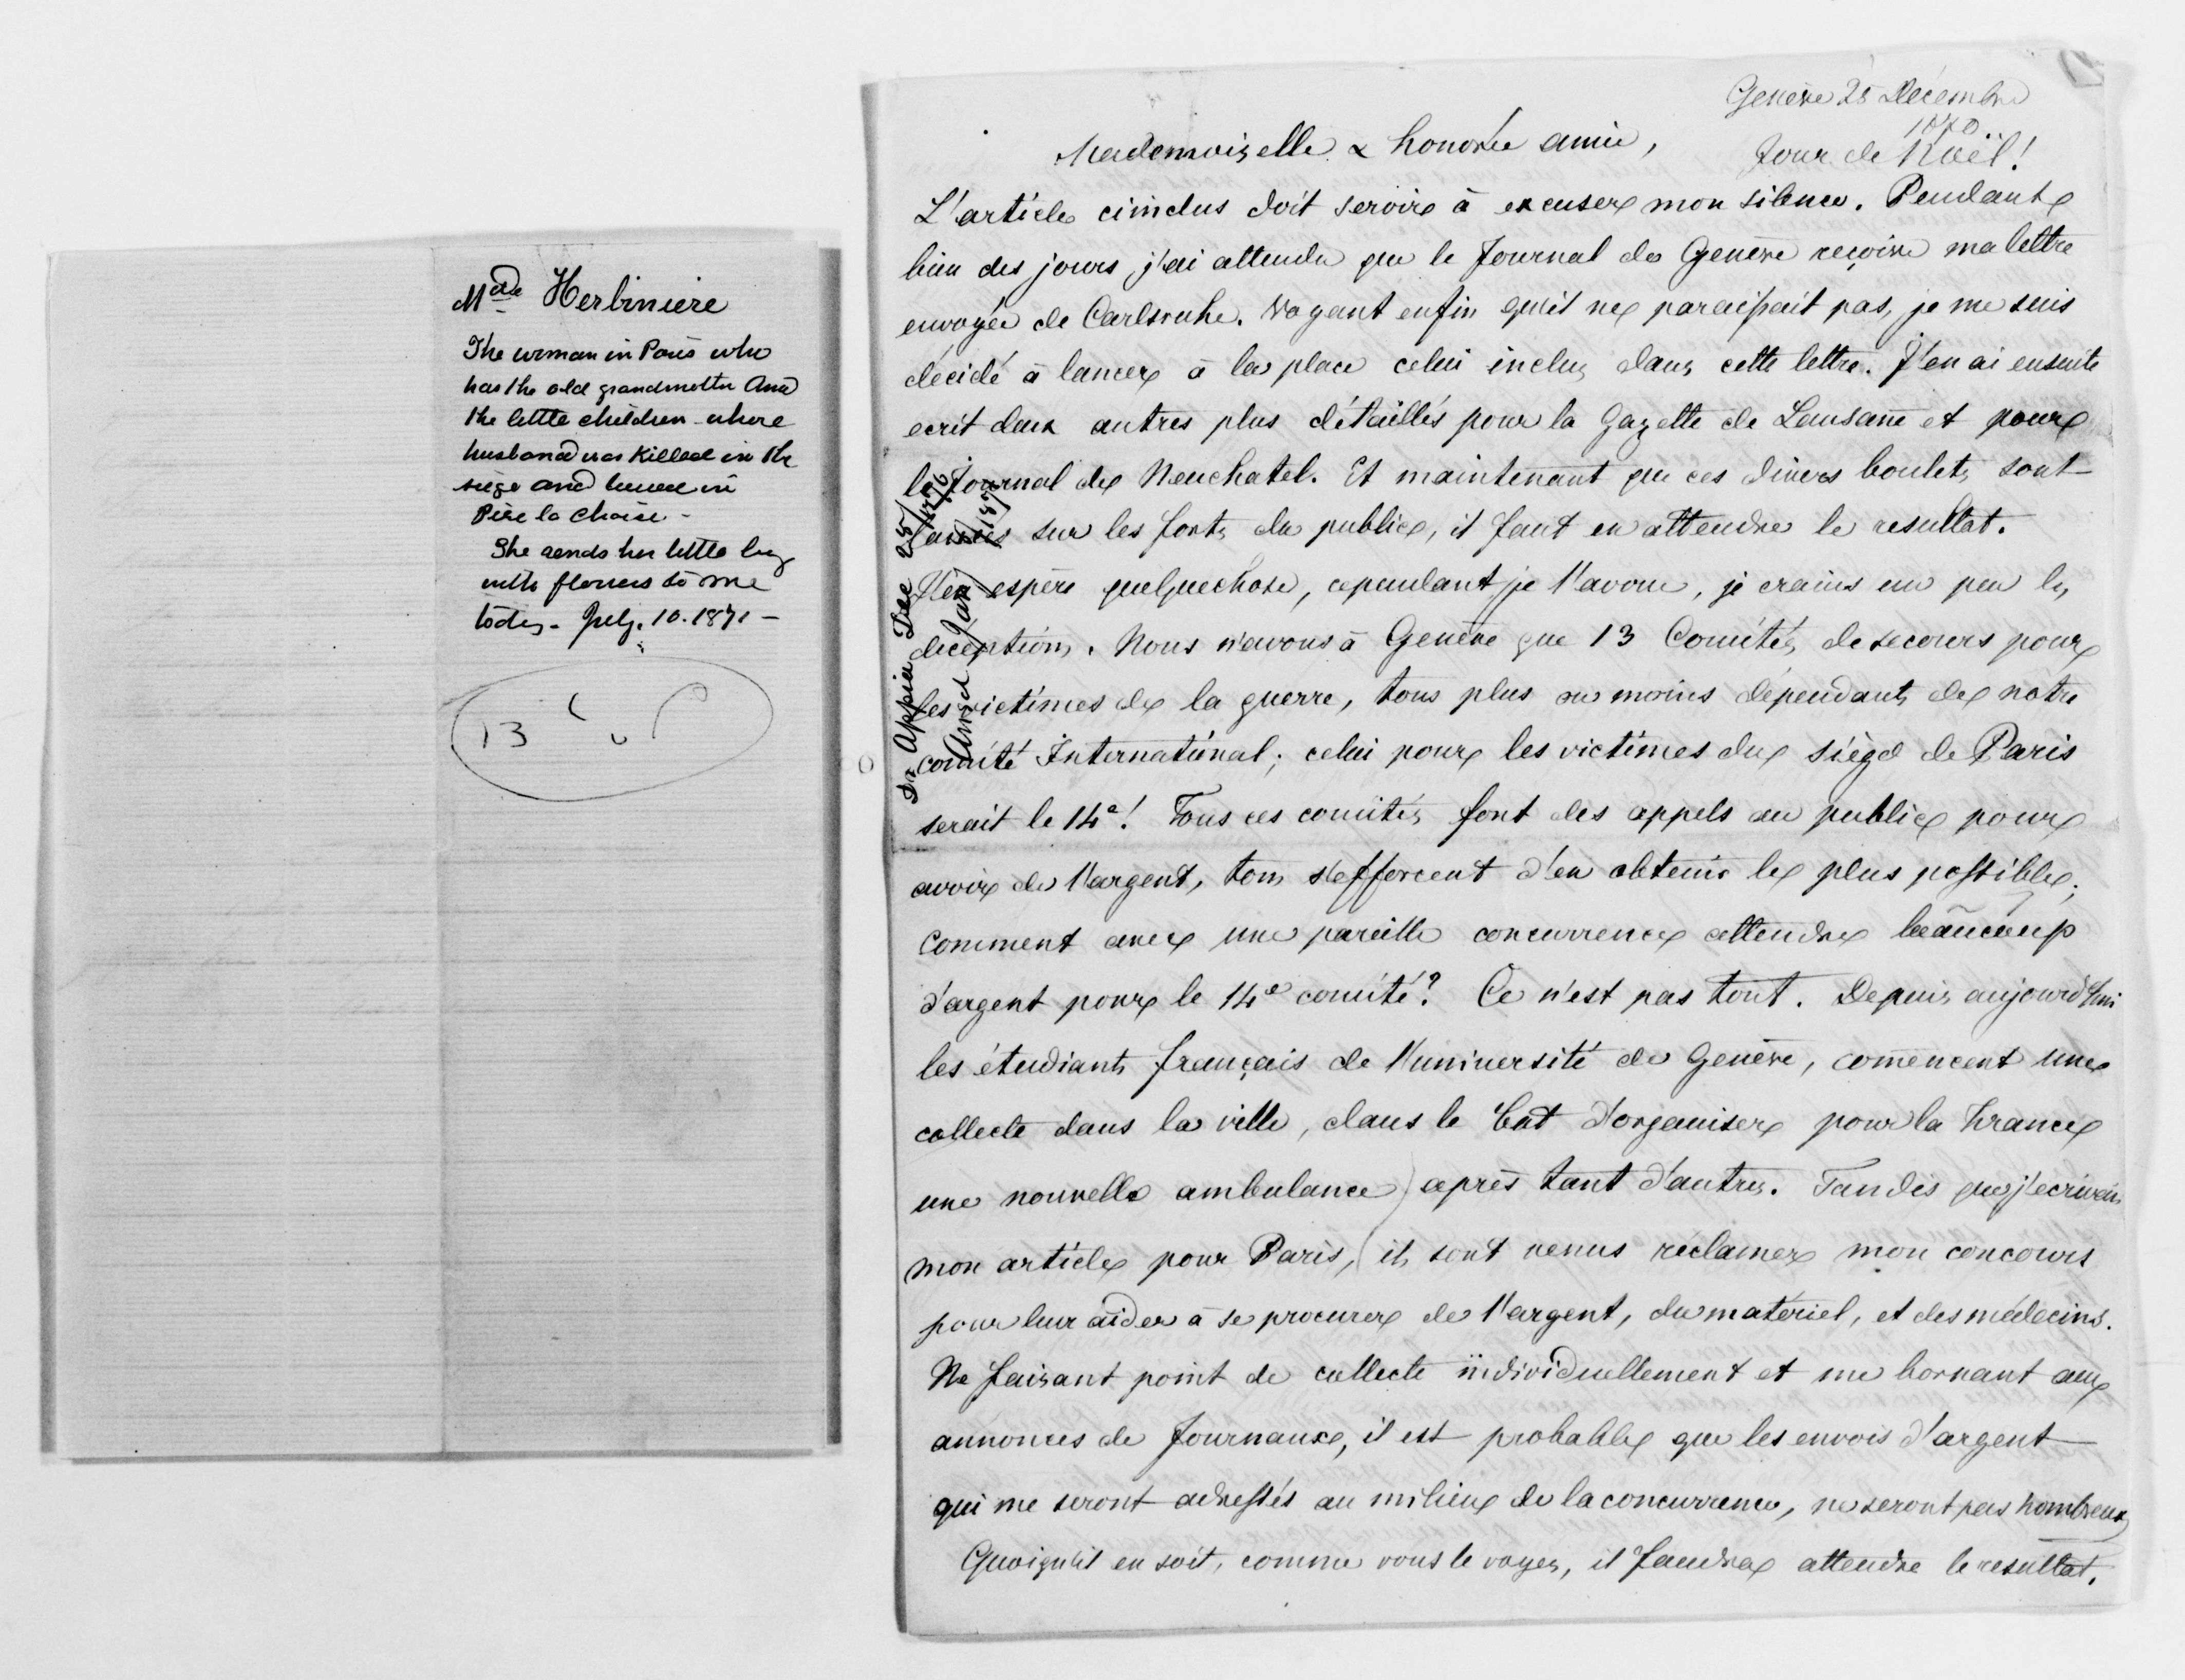 Mde Herbiniere
The woman in Paris who
has the old grandmother And
the little children - whose
husband was killed in the
siege and buried in
Père la Chaise -
She sends her little boy
with flowers to me
today - July. 10. 1871 -
13
Genève 25 Décembre
1870.
Jour de Noël!
Mademoiselle & honorée amie,
L'article ciinclus doit servir à excuser mon silence. Pendant
bien des jours, j'ai attendu que le Journal de Genève reçoive ma lettre
envoyée de Carlsruhe. Voyant enfin qu'il ne paraissait pas, je me suis
décidé à lancer à la place celui inclus dans cette lettre. J'en ai ensuite
ecrit deux autres plus détaillés pour la Gazette de Lausane et pour
le Journal de Neuchatel. Et maintenant que ces divers boulets sont
lancés sur les forts du public, il faut en attendre le resultat.
J'en espère quelquechose, cependant je l'avoue, je crains un peu les
deceptions. Nous n'avons à Genève que 13 Comités de secours pour
les victimes de la guerre, tous plus ou moins dépendants de notre
comité International; celui pour les victimes du siège de Paris
serait le 14e! Tous ces comités font des appels au public pour
avoir de l'argent, tous s'efforcent d'en obtenir le plus possible;
comment avec une pareille concurrence attendre beaucoup
d'argent pour le 14e comité? Ce n'est pas tout. Depuis aujourd'hui
les étudiants français de l'université de Genève, comencent une
collecte dans la ville, dans le but d'organiser pour la France
une nouvelle ambulance après tant d'autres. Tandis que j'ecrivais
mon article pour Paris, ils sont venus réclamer mon concours
pour leur aider à se procurer de l'argent, du matériel, et des médecins.
Ne faisant point de collecte individuellement et me bornant aux
annonces de Journaux, il est probable que les envois d'argent
qui me seront adressés au milieu de la concurrence, ne seront pas nombreux
Quoiqu'il en soit, comme vous le voyez, il faudra attendre le resultat.
Dr Appia Dec 25/1870
Ansd Jan